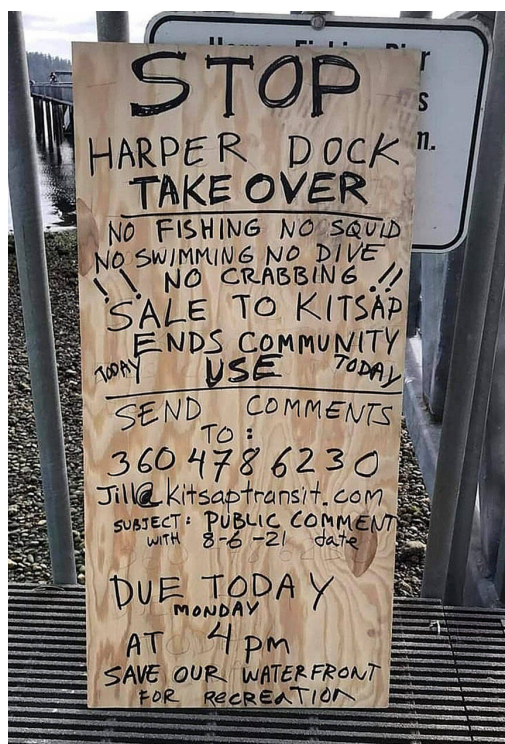 Pier
s
m.
STOP
HARPER DOCK
TAKE OVER
NO FISHING NO SQUID
NO SWIMMING NO DIVE
!! NO CRABBING !!
SALE TO KITSAP
ENDS COMMUNITY
TODAY USE TODAY
SEND COMMENTS
TO:
360 478 6230
Jill@kitsaptransit.com
SUBJECT: PUBLIC COMMENT
WITH 8-6-21 date
DUE TODAY
MONDAY
AT 4 pm
SAVE OUR WATERFRONT
FOR RECREATION